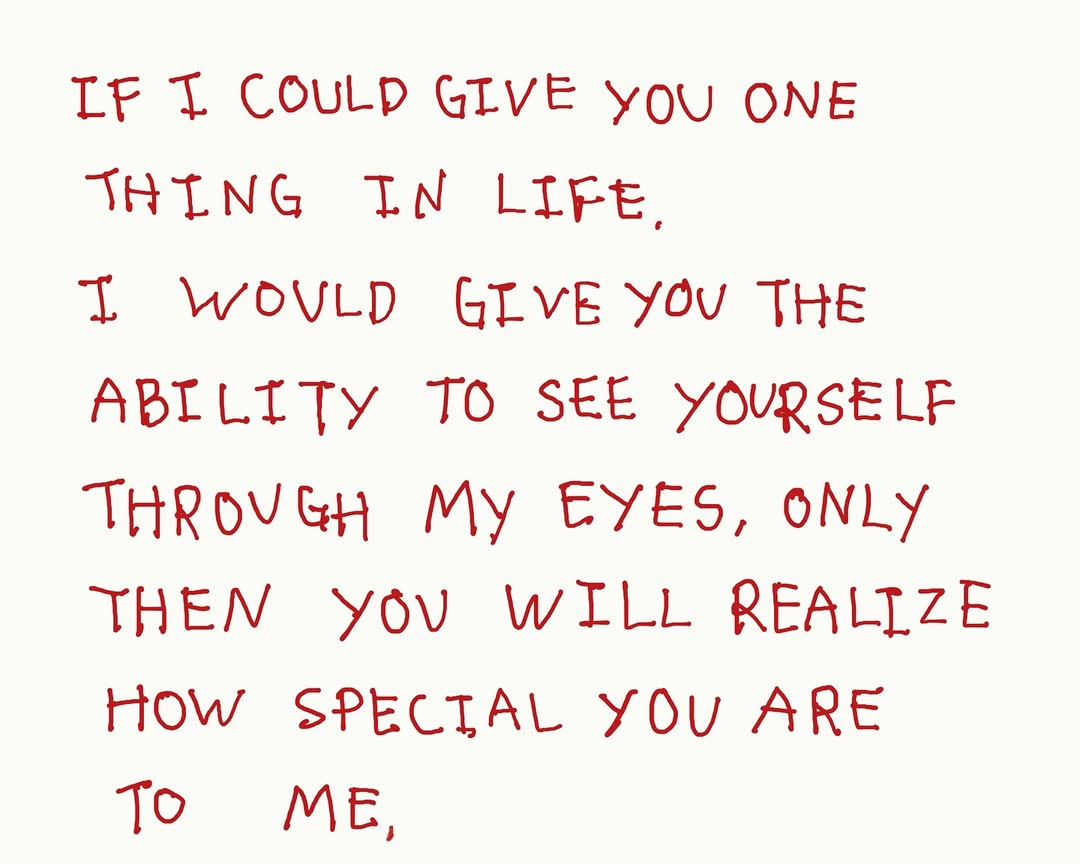 IF I COULD GIVE YOU ONE
THING IN LIFE.
I WOULD GIVE YOU THE
ABILITY TO SEE YOURSELF
THROUGH MY EYES, ONLY
THEN YOU WILL REALIZE
HOW SPECIAL YOU ARE
TO ME,